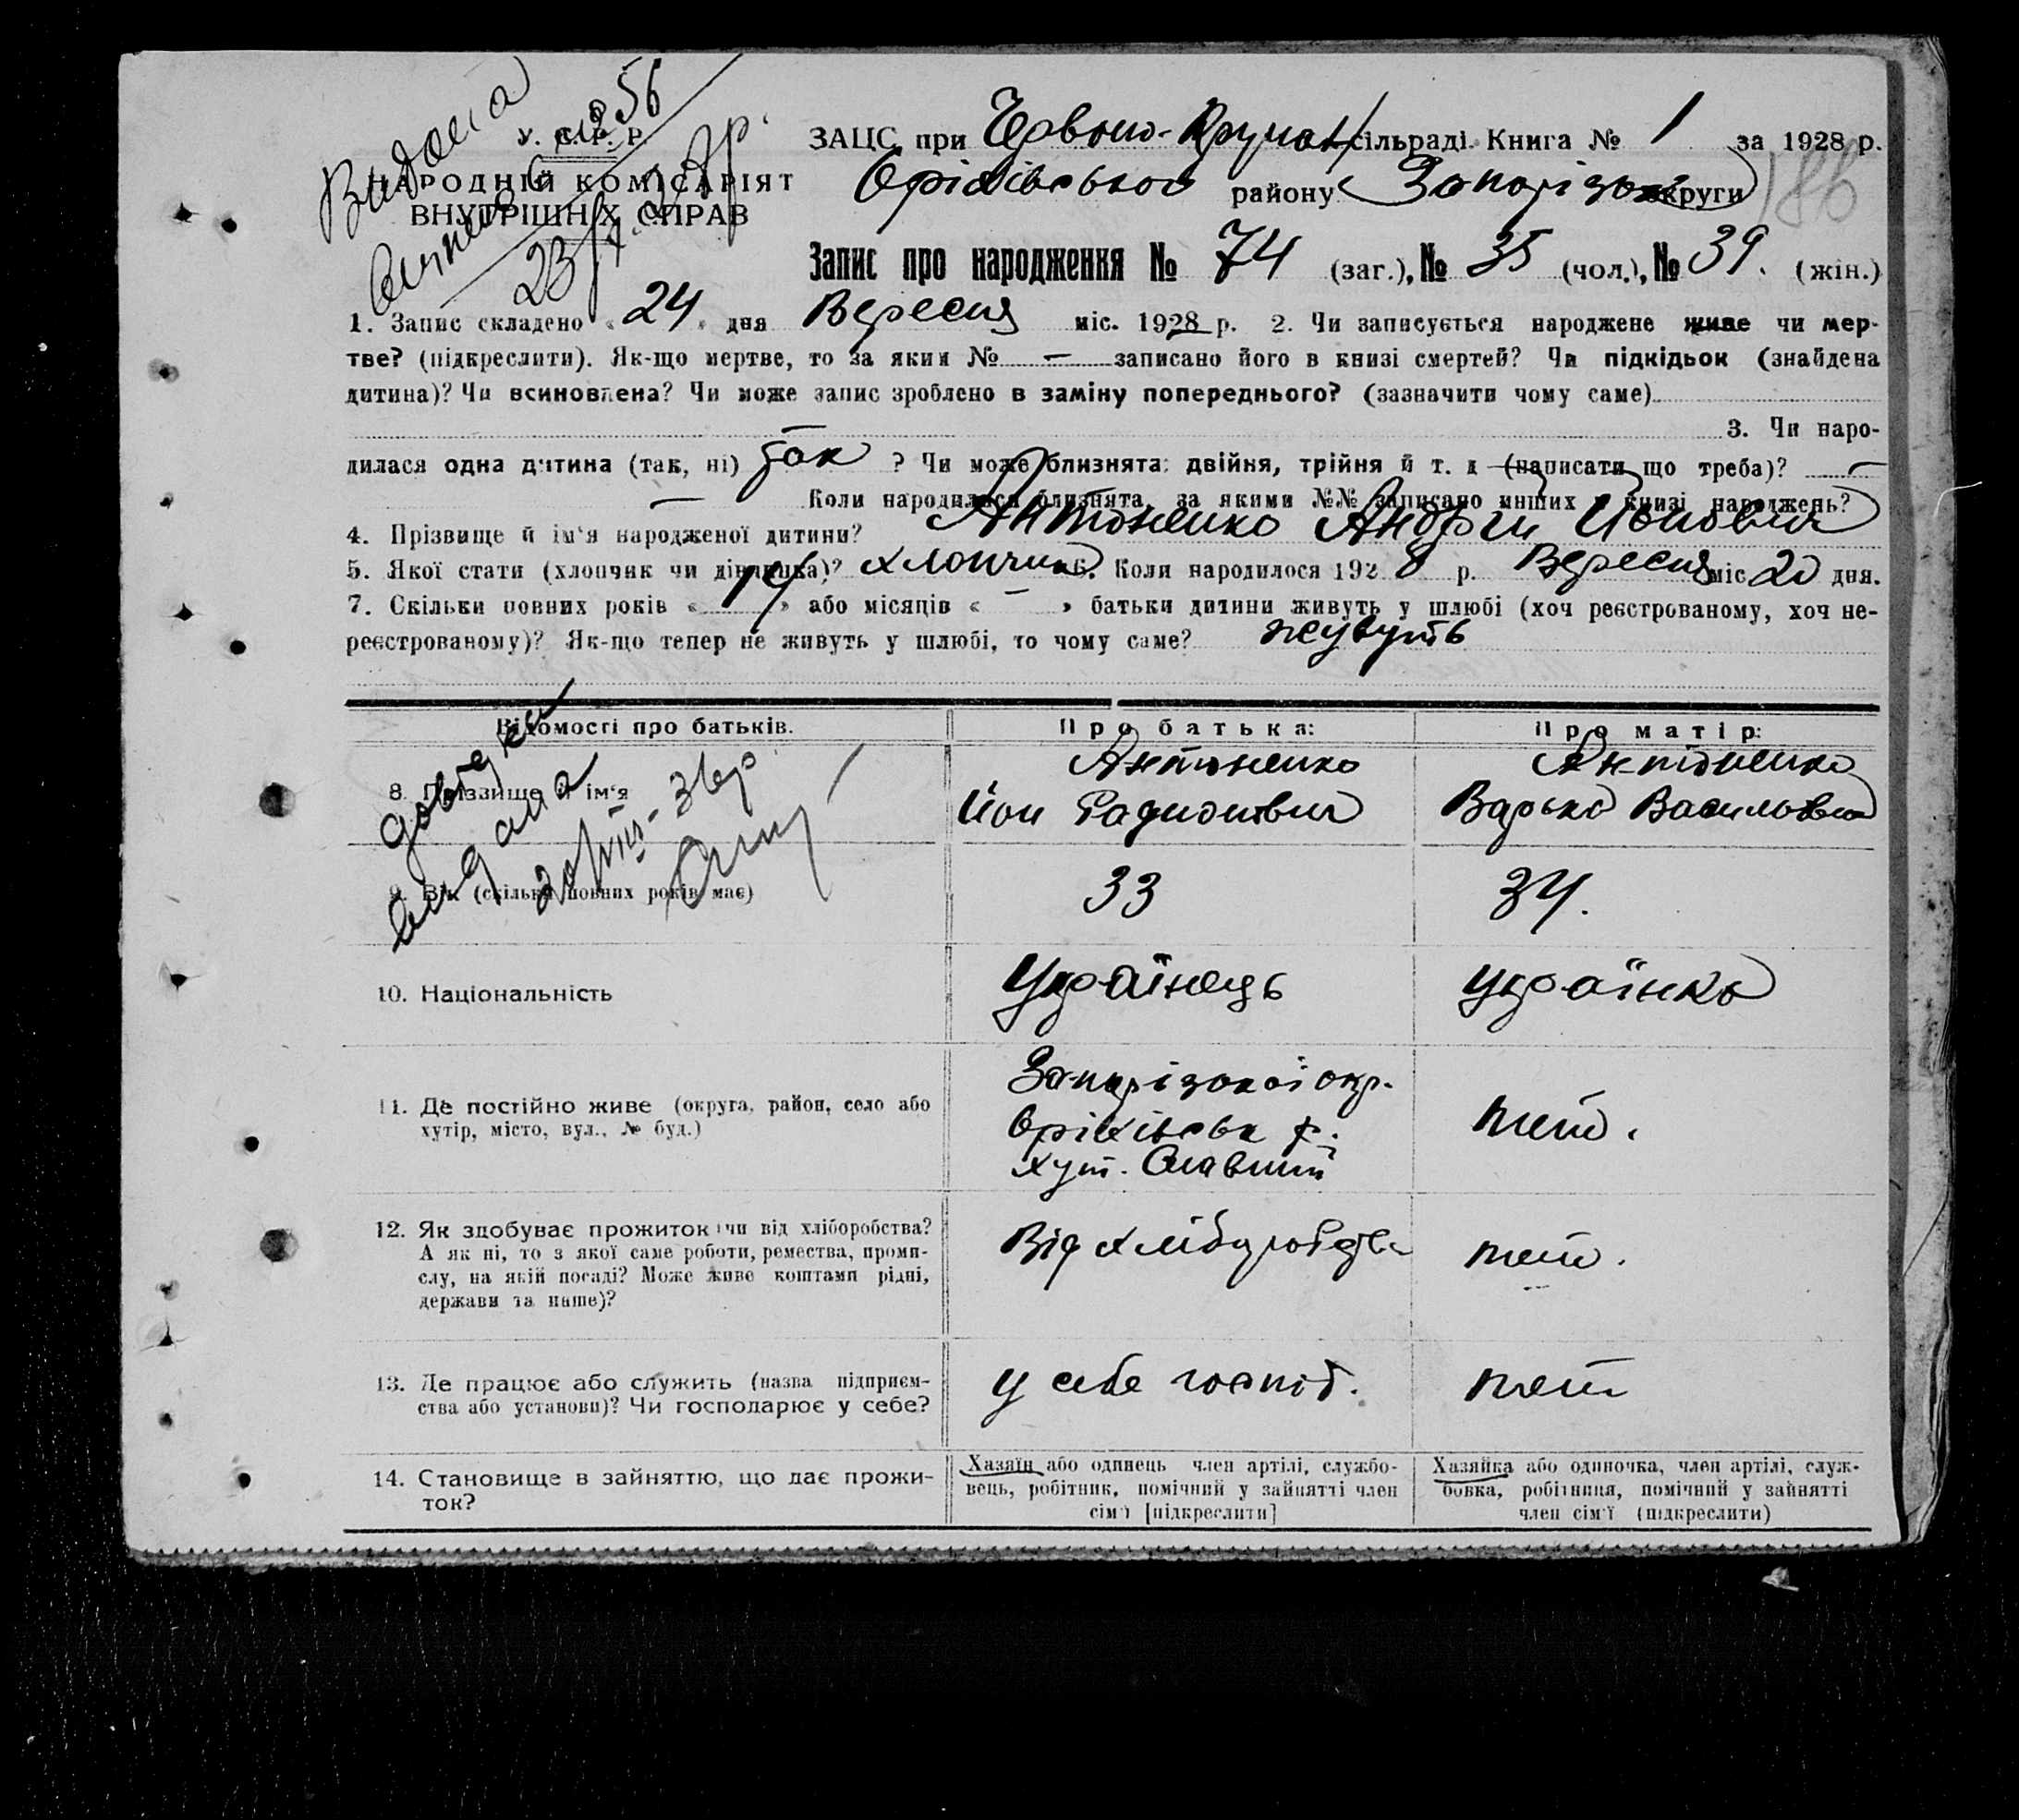 У. С. Р. Р.
НАРОДНІЙ КОМІСАРІЯТ
ВНУТРІШНІХ СПРАВ
Видана
ЗАЦС при Червоно- сільраді. Книга № 1 за 1928 р.
Оріхівської району Запорізької округи
186
Запис про народження № 74 (заг.), № 35 (чол.), № 39. (жін.)
1. Запис складено « 24 » дня Вересня міс. 1928 р. 2. Чи записується народжене живе чи мер-
тве? (підкреслити). Як-що мертве, то за яким № — записано його в книзі смертей? Чи підкідьок (знайдена
дитина)? Чи всиновлена? Чи може запис зроблено в заміну попереднього? (зазначити чому саме)
3. Чи наро-
дилася одна дитина (так, ні) так ? Чи може близнята: двійня, трійня й т. д (написати що треба)? —
— Коли народилися близнята, за якими №№ записано инших в книзі народжень?
4. Прізвище й ім'я народженої дитини? Антоненко Андрій Йонович
5. Якої стати (хлопчик чи дівчинка)? хлопчик 6. Коли народилося 1928 р. Вересня міс 20 дня.
7. Скільки повних років « 14 » або місяців « — » батьки дитини живуть у шлюбі (хоч реєстрованому, хоч не-
реєстрованому)? Як-що тепер не живуть у шлюбі, то чому саме? живуть
Відомості про батьків. Про батька: Про матір:
8. Прізвище й ім'я Антоненко Антоненко
Йон Радионович Варька Василівна
9. Вік (скільки повних років має) 33 34.
10. Національність Українець Українка
11. Де постійно живе (округа, район, село або
хутір, місто, вул., № буд.)
Запорізької окр.
Оріхівськ р.
хут.
теж.
12. Як здобуває прожиток чи від хліборобства?
А як ні, то з якої саме роботи, ремества, проми-
слу, на якій посаді? Може живе коштами рідні,
держави та инше)?
Від хліборобств
теж.
13. Де працює або служить (назва підприєм-
ства або установи)? Чи господарює у себе?
у себе господ.
теж
14. Становище в зайняттю, що дає прожи-
ток?
Хазяїн або одинець член артілі, службо-
вець, робітник, помічний у зайнятті член
сім'ї [підкреслити]
Хазяйка або одиночка, член артілі, служ-
бовка, робітниця, помічний у зайнятті
член сім'ї (підкреслити)